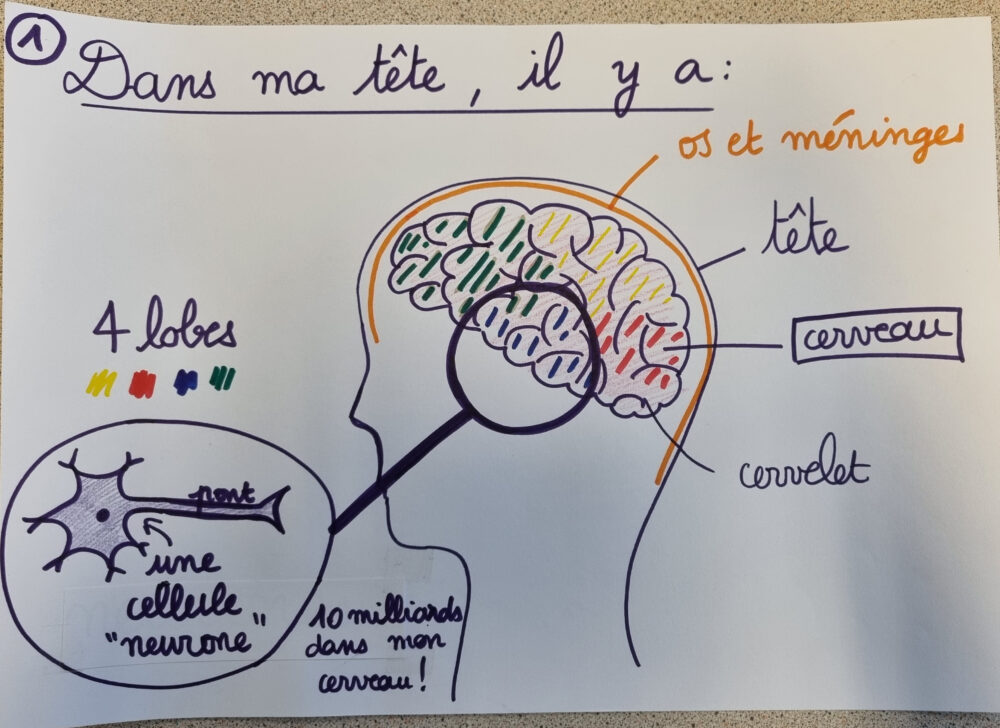 1
Dans ma tête, il y a :
os et méninges
tête
cerveau
cervelet
4 lobes
pont
une
cellule
"neurone"
10 milliards
dans mon
cerveau !